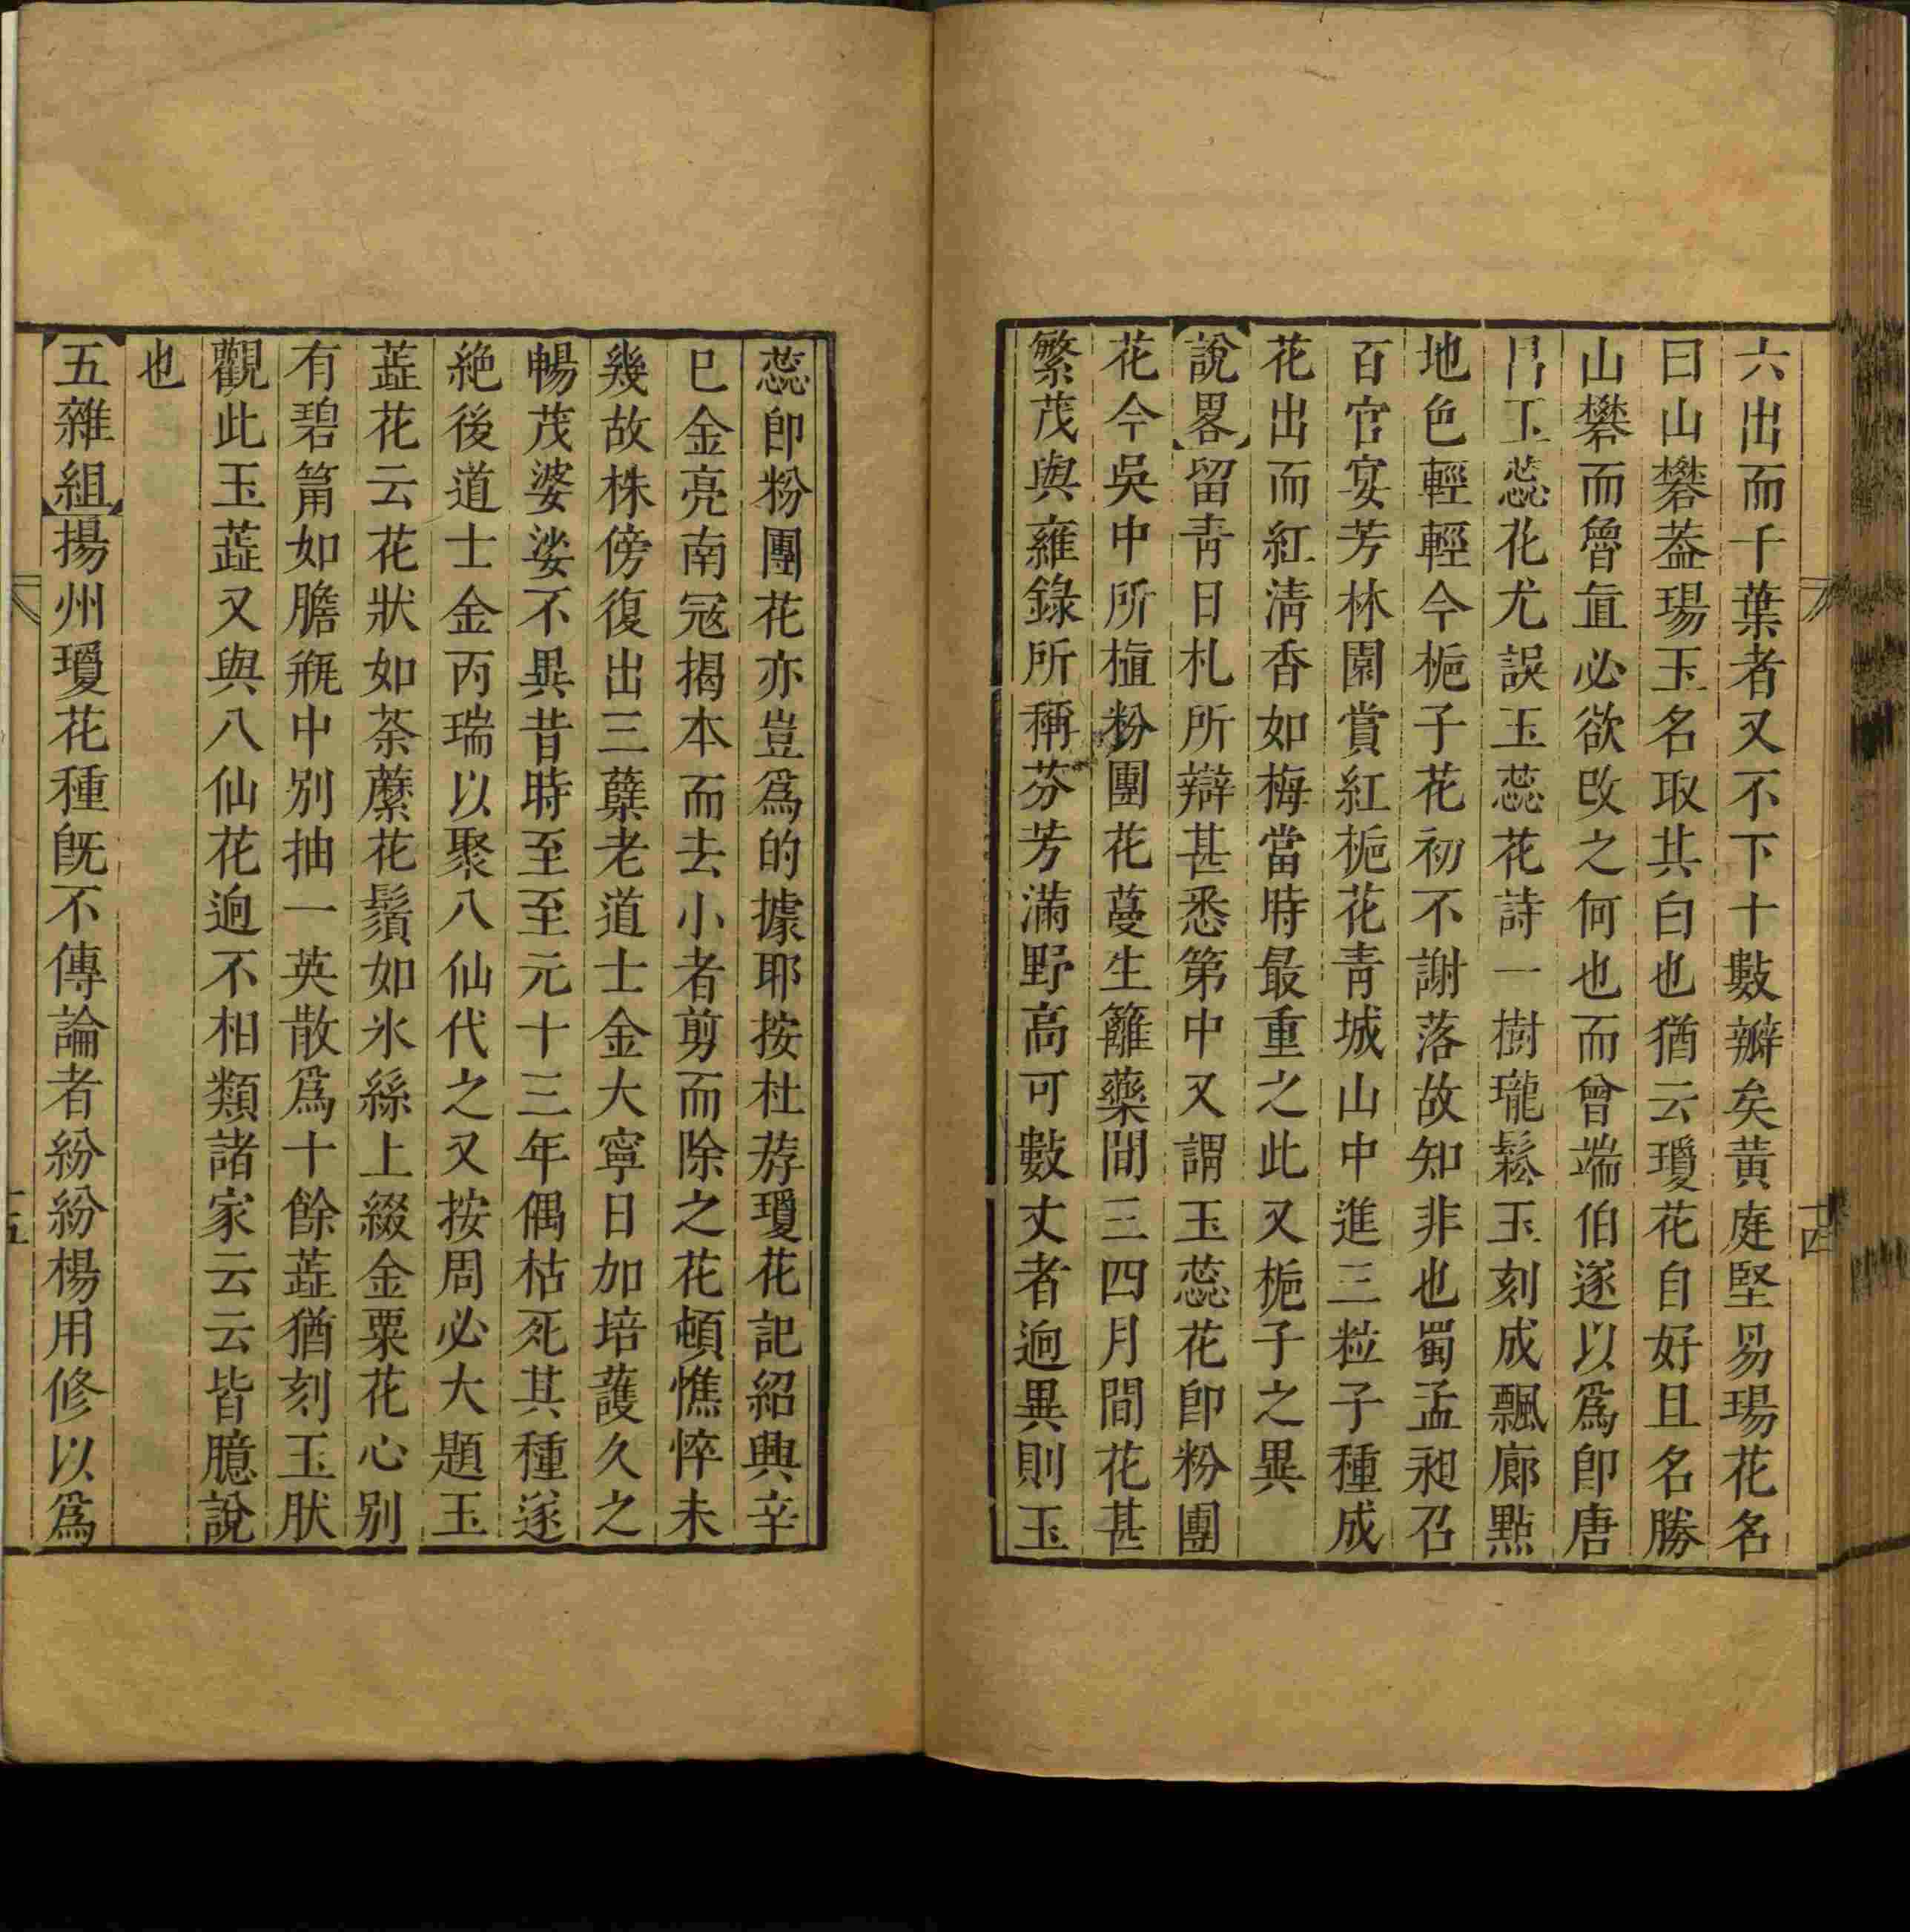 六出而千葉者又不下十數瓣矣黃庭堅易瑒花名
曰山礬葢瑒玉名取其白也猶云瓊花自好且名勝
山礬而魯直必欲改之何也而曾端伯遂以爲卽唐
昌玉蕊花尤誤玉蕊花詩一樹瓏鬆玉刻成飄廊點
地色輕輕今梔子花初不謝落故知非也蜀孟昶召
百官宴芳林園賞紅梔花青城山中進三粒子種成
花出而紅淸香如梅當時最重之此又梔子之異
說畧留靑日札所辯甚悉第中又謂玉蕊花卽粉團
花今吳中所植粉團花蔓生籬藥間三四月間花甚
繁茂與雍錄所稱芬芳滿野高可數丈者逈異則玉
蕊卽粉團花亦豈爲的據耶按杜斿瓊花記紹興辛
巳金亮南冦揭本而去小者剪而除之花頓憔悴未
幾故株傍復出三蘖老道士金大寧日加培護久之
暢茂婆娑不異昔時至至元十三年偶枯死其種遂
絶後道士金丙瑞以聚八仙代之又按周必大題玉
蕋花云花狀如荼蘼花鬚如氷絲上綴金粟花心别
有碧筩如膽甁中别抽一英散爲十餘蕋猶刻玉肰
觀此玉蕋又與八仙花逈不相類諸家云云皆臆說
也
五雜組揚州瓊花種旣不傳論者紛紛楊用修以爲
十四
十五